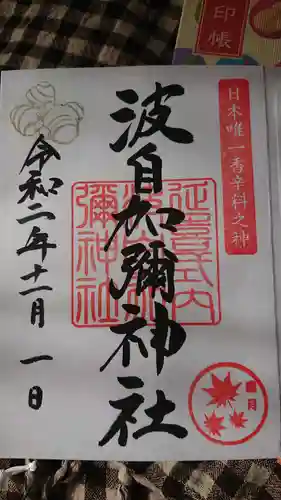 印帳
日本唯一香辛料之神
波自加彌神社
延喜式内
波自加
彌神社
令和二年十一月一日